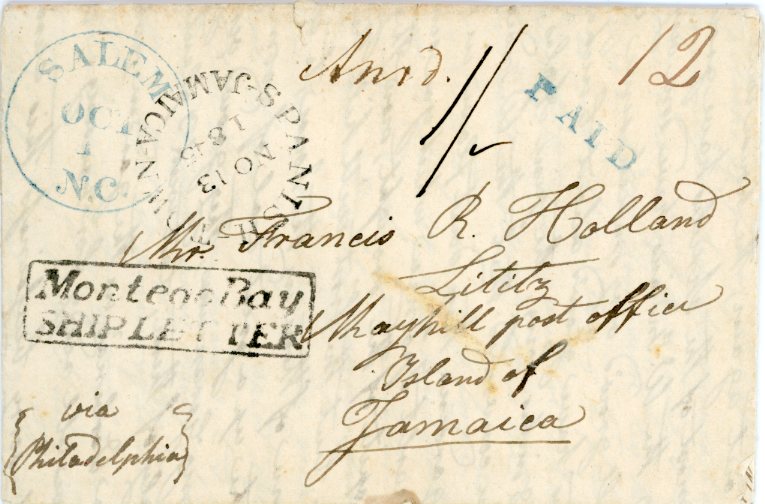 SALEM
OCT
1
N.C.
SPANISH TOWN-JAMAICA-
NO 13
1845
Answd.
1/
12
PAID
Mr. Francis R. Holland
Lititz
Mayhill post office
Island of
Jamaica
Montego Bay
SHIP LETTER
via
Philadelphia